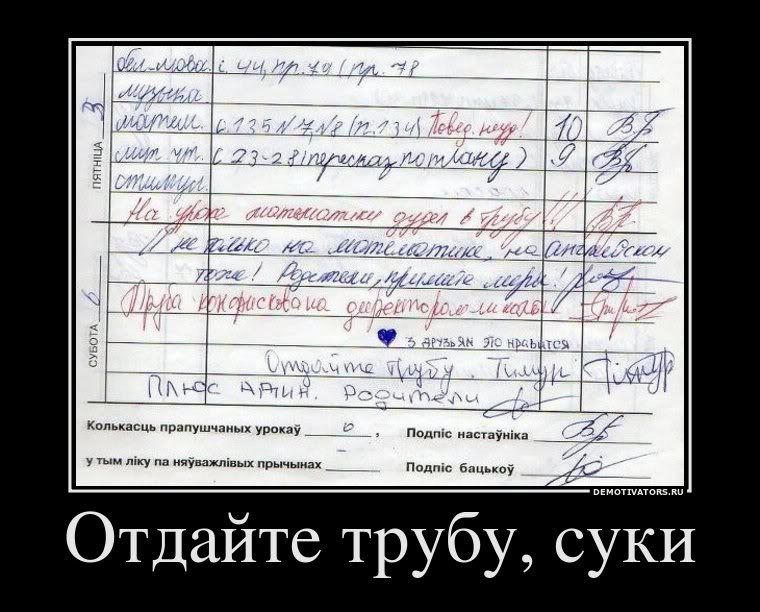 бел.мова с. 44, пр. 79 (пр. 78
музыка.
ПЯТНІЦА 3
матем. с. 135 N 7, N 8 (п. 134) Повед. неуд! 10
лит. чт. С 23-28 (пересказ по плану) 9
стимул.
На уроке математики дудел в трубу!!!
И не только на математике, на английском
тоже! Родители, примите меры!
СУБОТА 6
Труба конфискована директором школы
3 друзьям это нравится
Отдайте трубу. Тимур Тімур
Плюс адин. Родители
Колькасць прапушчаных урокаў 0 , Подпіс настаўніка
у тым ліку па няўважлівых прычынах – Подпіс бацькоў
DEMOTIVATORS.RU
Отдайте трубу, суки